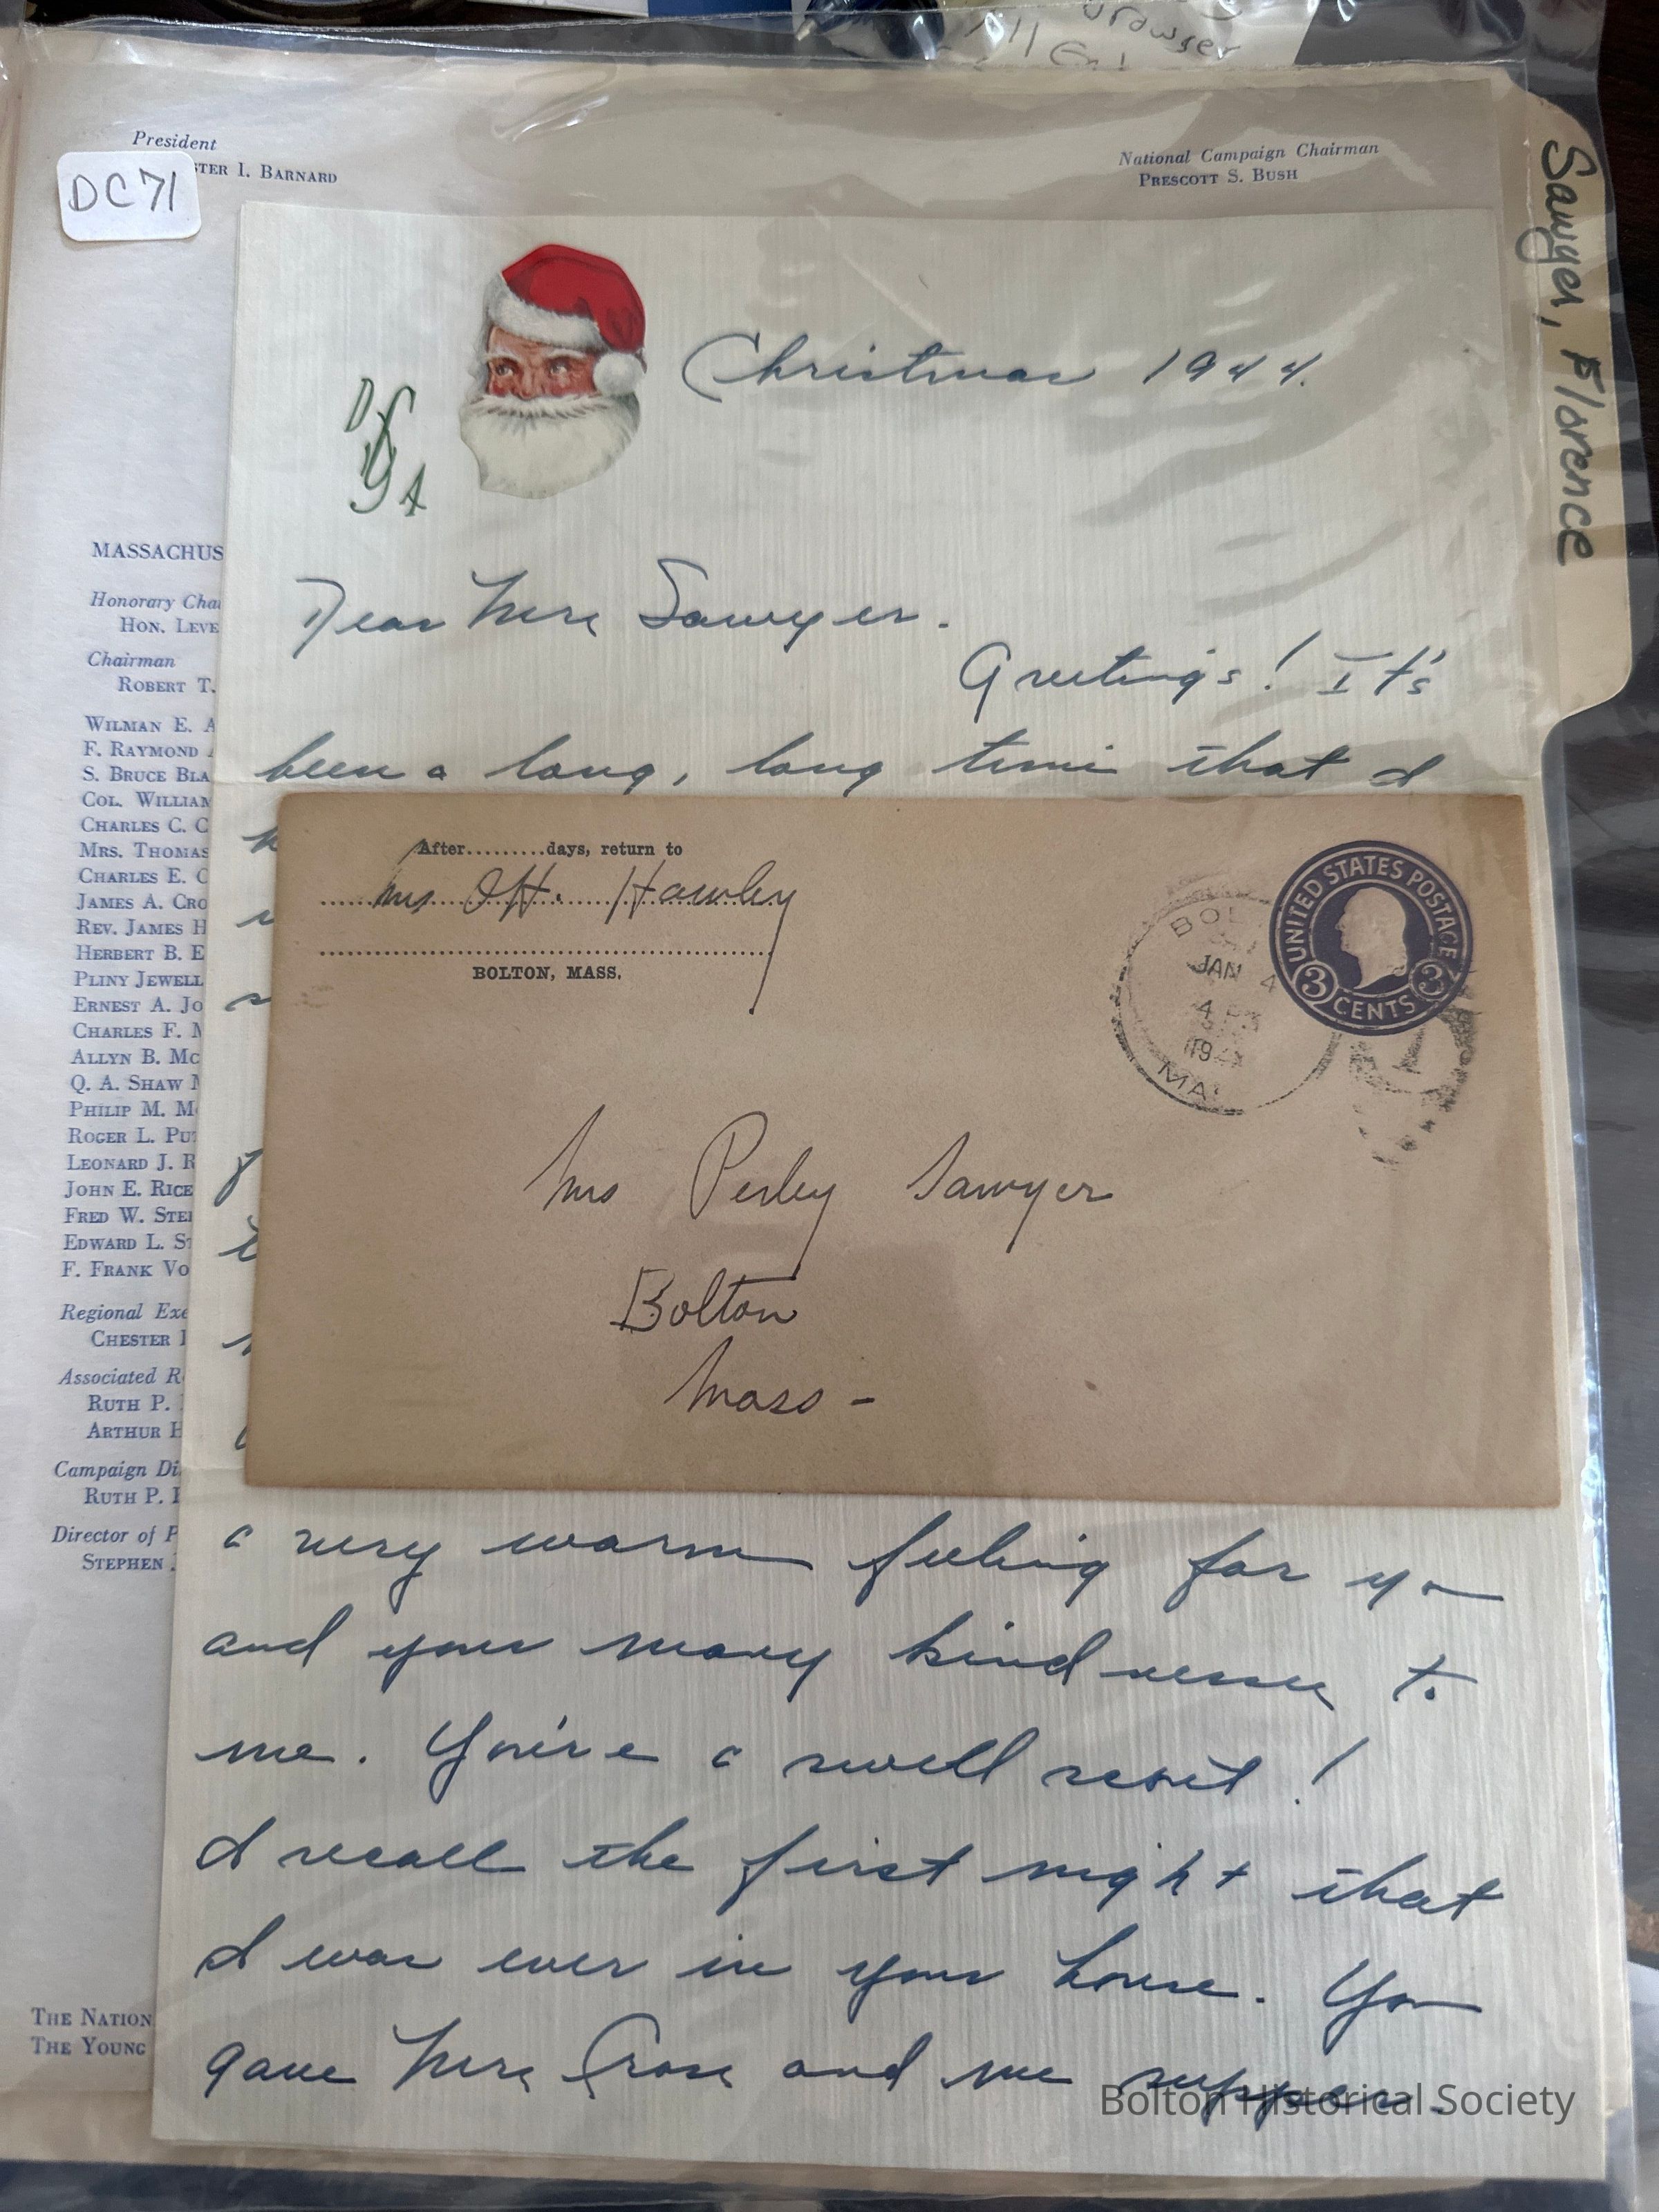 drawser
President
STER I. BARNARD
DC71
National Campaign Chairman
PRESCOTT S. BUSH
Sawyer, Florence
Christmas 1944.
Dear Mrs Sawyer.
Greetings! It's
been a long, long time that I
MASSACHUS
Honorary Cha
HON. LEVE
Chairman
ROBERT T.
WILMAN E. A
F. RAYMOND
S. BRUCE BLA
COL. WILLIAM
CHARLES C. C
MRS. THOMAS
CHARLES E. C
JAMES A. CRO
REV. JAMES H
HERBERT B. E
PLINY JEWELL
ERNEST A. JO
CHARLES F. M
ALLYN B. MC
Q. A. SHAW M
PHILIP M. M
ROGER L. PUT
LEONARD J. R
JOHN E. RICE
FRED W. STE
EDWARD L. ST
F. FRANK VO
Regional Exe
CHESTER I
Associated R
RUTH P.
ARTHUR H
Campaign Di
RUTH P.
Director of P
STEPHEN
THE NATION
THE YOUNG
After.........days, return to
Mrs O.H. Hawley
BOLTON, MASS.
UNITED STATES POSTAGE
3 CENTS 3
BOL
JAN 4
4 PM
194
MA
Mrs Perley Sawyer
Bolton
Mass -
a very warm feeling for you
and your many kindnesses to
me. You're a swell scout!
I recall the first night that
I was ever in your house. You
gave Mrs Cross and me supper.
Bolton Historical Society